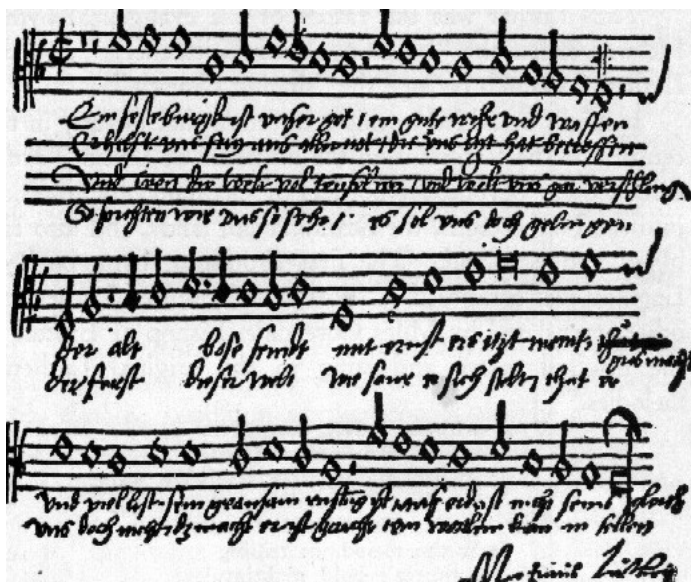 Ein feste burgk ist unser got ein gute wehr und waffen
Er hilft uns frey aus aller not die uns itzt hat betroffen
Und wen die welt vol teuffel wer und wolt uns gar verschlingen
So furchten wir uns so sehr es sol uns doch gelingen
Der alt bose feindt mit ernst ers itzt meint gros macht
Der furst dieser welt wie saur er sich stelt that er
und viel list sein grausam rustung ist auf erd ist nicht seins gleich
uns doch nicht macht er ist gericht ein kan in fellen
Martinus Luther